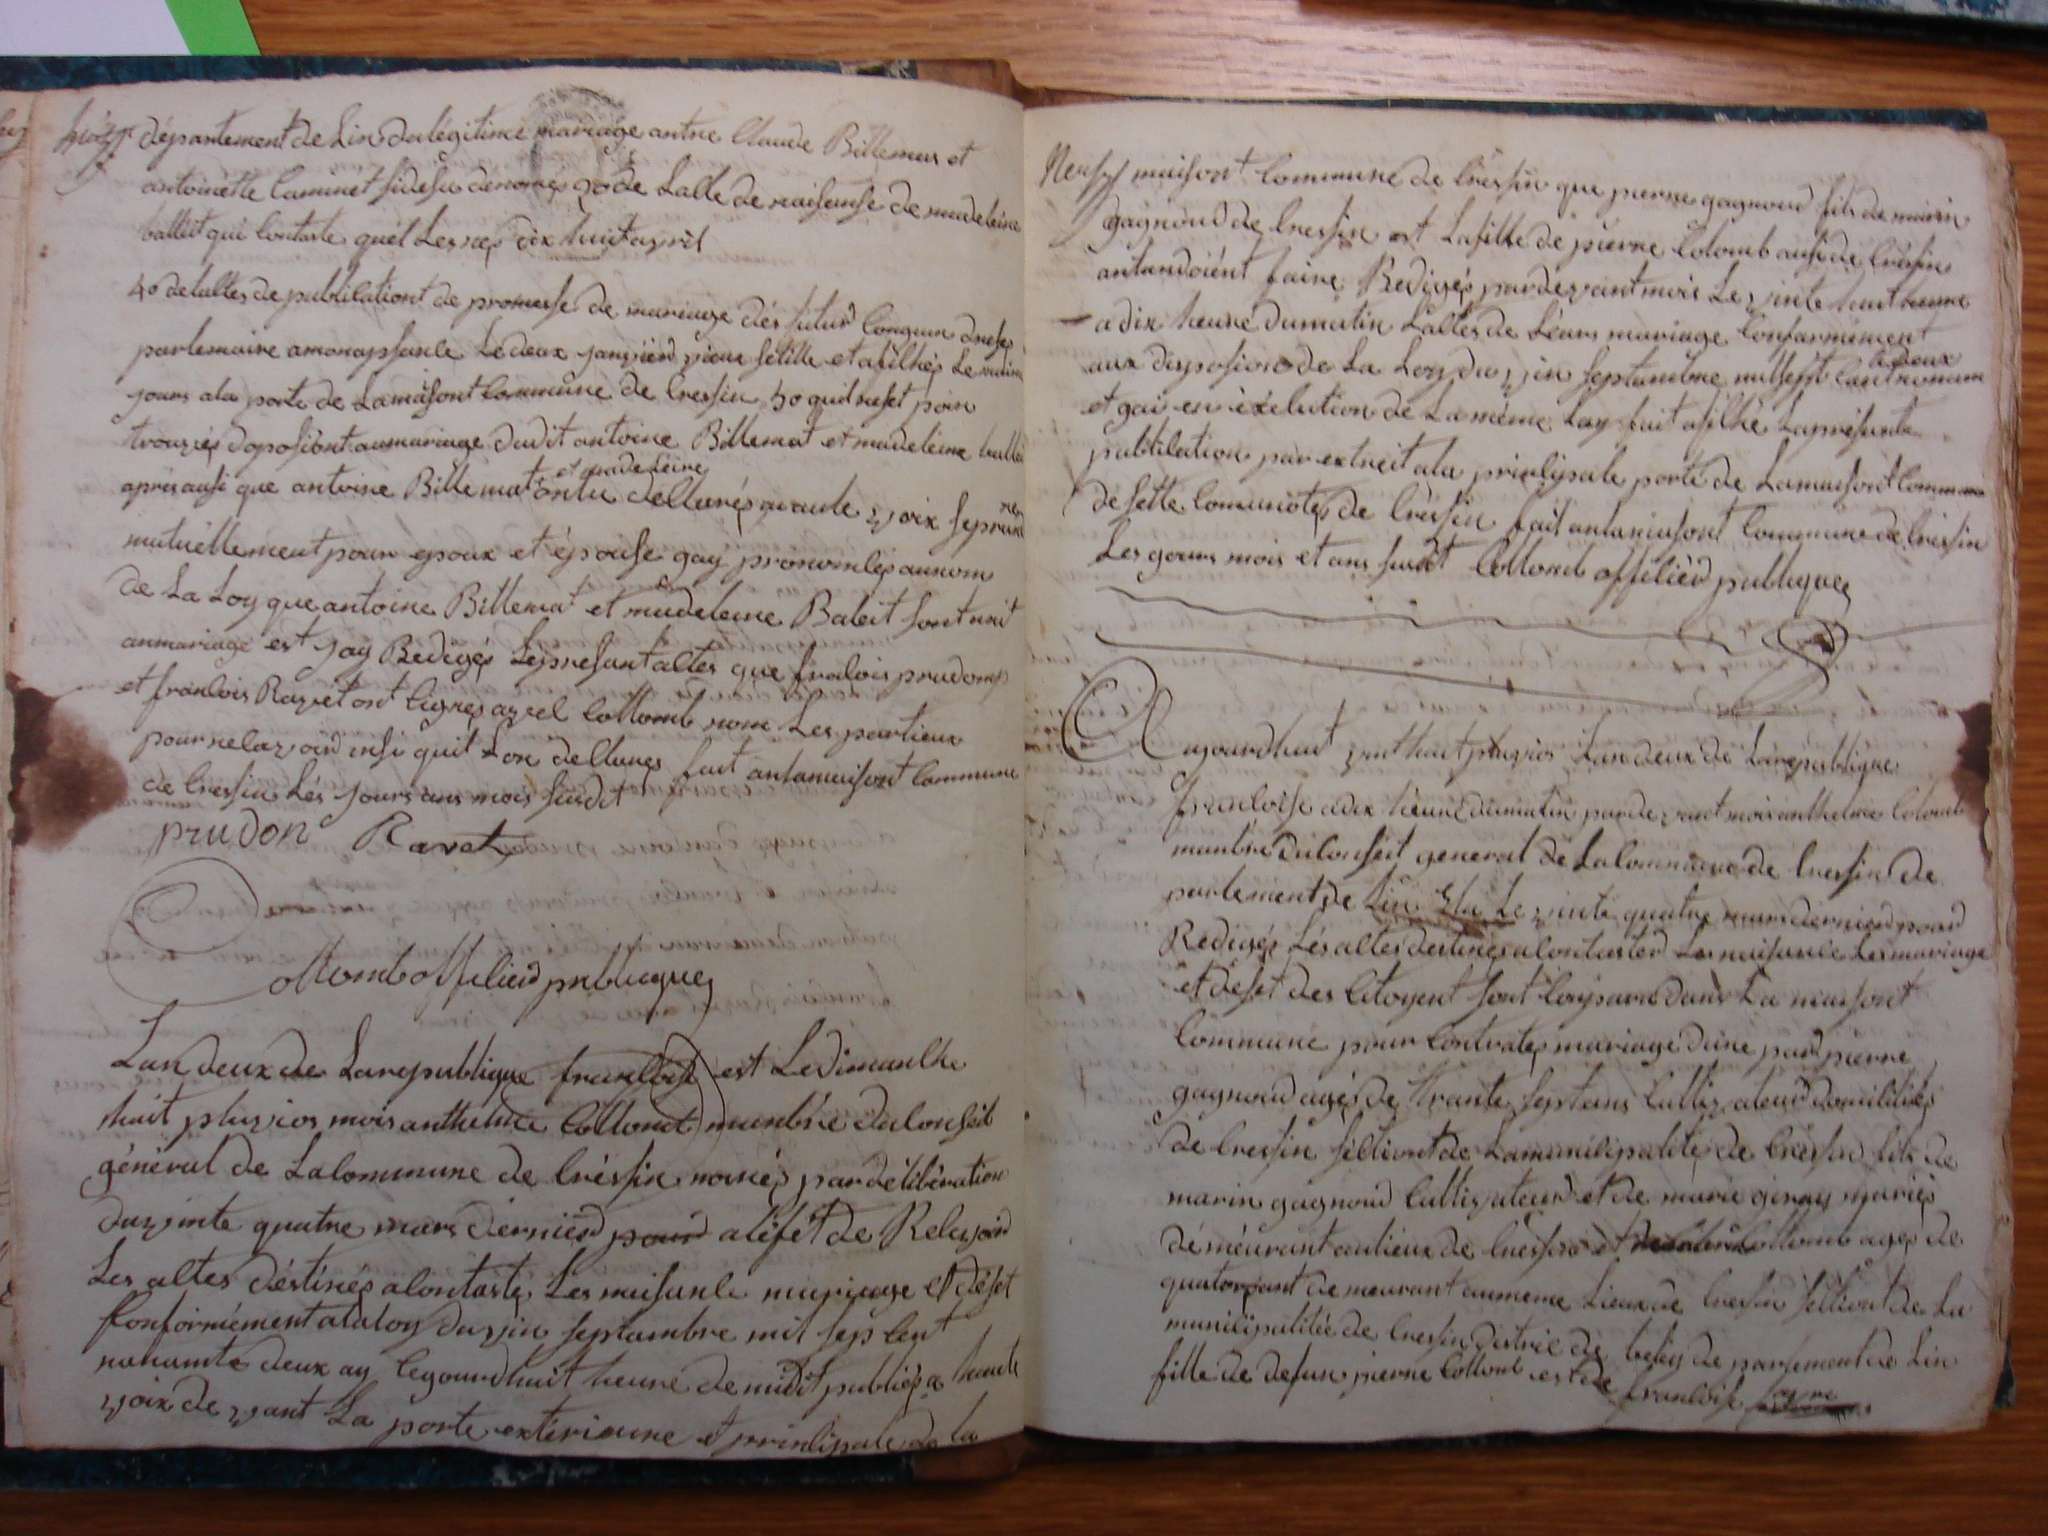 département de Lin du légitime mariage antre Claude Billemas et
antoinette Caminet sidesu denomes 30 de Lalte de naisense de madeleine
ballet qui Contaste quél Les nes dix huit avril
40 de laltes de publilationt de promesse de mariage dés futurs
parlemaire Le deux janvier vieux stille et afilhés Le même
jours ala porte de Lamaisont Commune de Cressin 50 quil neset poin
trouvés doposiont aumariage dudit antoine Billemat et madeleine
et madeleine
après ausi que antoine Billemat ontu dellarés avaute voix se prendre
mutuellement pour epoux et épouse jay prononsés aunom
de La Loy que antoine Billemat et madeleine Baleit sont unit
anmariage est jay Redigés Lepresant altes que fralois prudomp
et franlois Ravet ont signés avel Collomb nom Les partieux
pour nelavoir insi quil Lon dellares fait antamaisont Commune
de Cressin Lés jours ans mois susdit
prudon Ravet
Collomb offilier publique
Lan deux de Larepublique franloise est Ledimanlhe
huit pluvios mois anthelme Collomb manbre dulonseil
général de Lalommune de Créssin només par délibération
du vinte quatre mars dernierd pour aléfét de Relevoir
Les altes déstinés alontastes Les naisanle mariage et déset
Conformément alaloy du vin septambre mil sep Cent
nonante deux ay Cejourdhuit heure demidit publiés a haute
voix devant La porte extérieure et prinlipale de la
maisont Commune de Créssin que pierre gagnoud fils de marin
gagnoud de Cressin est Lafille de pierre Colomb ausi de Créssin
antandoient faire Redigés pardevant mois Le vinte huit
a dix heure dumatin Laltes de Léurs mariage Conformément
à deux
aux disposions de La Loy du vin septambre millsept Cant nonante
et jai en éxélution de La même Loy fait afilhé Laprésante
publilation par extrait ala prinlipale porte de Lamaisont Commune
de sette Comunotés de Créssin fait antamaisont Commune de Cressin
Les jours mois et ans susdt Collomb offilier publique
Aujourdhuit vint huit pluvios Landeux de Larépublique
franloise adix heure dumatin pardevant mois anthelme Colomb
manbre dulonseit general de Lalommune de Cressin de
partement de Lin Elu Le vinte quatre mars dernierd pour
Redigés Lés altes destinés alontaster Les naisanle Les mariage
et déset des Citoyent sont Conparu dans La maisont
Commune pour Contrates mariage dune pard pierre
gagnoud agés de trante sept ans Cultivateur domililiés
de Cressin séltiont de Lamunilipalités de Créssin fils de
marin gagnoud Cultivateur et de marie mariés
déméurant aulieux de Cressin et Collomb agés de
quatorzant demeurant aumeme Lieux de Cressin seltiont de La
munisipalitée de Cressin distric de beley departement de Lin
fille de defun pierre Collomb est de franloise